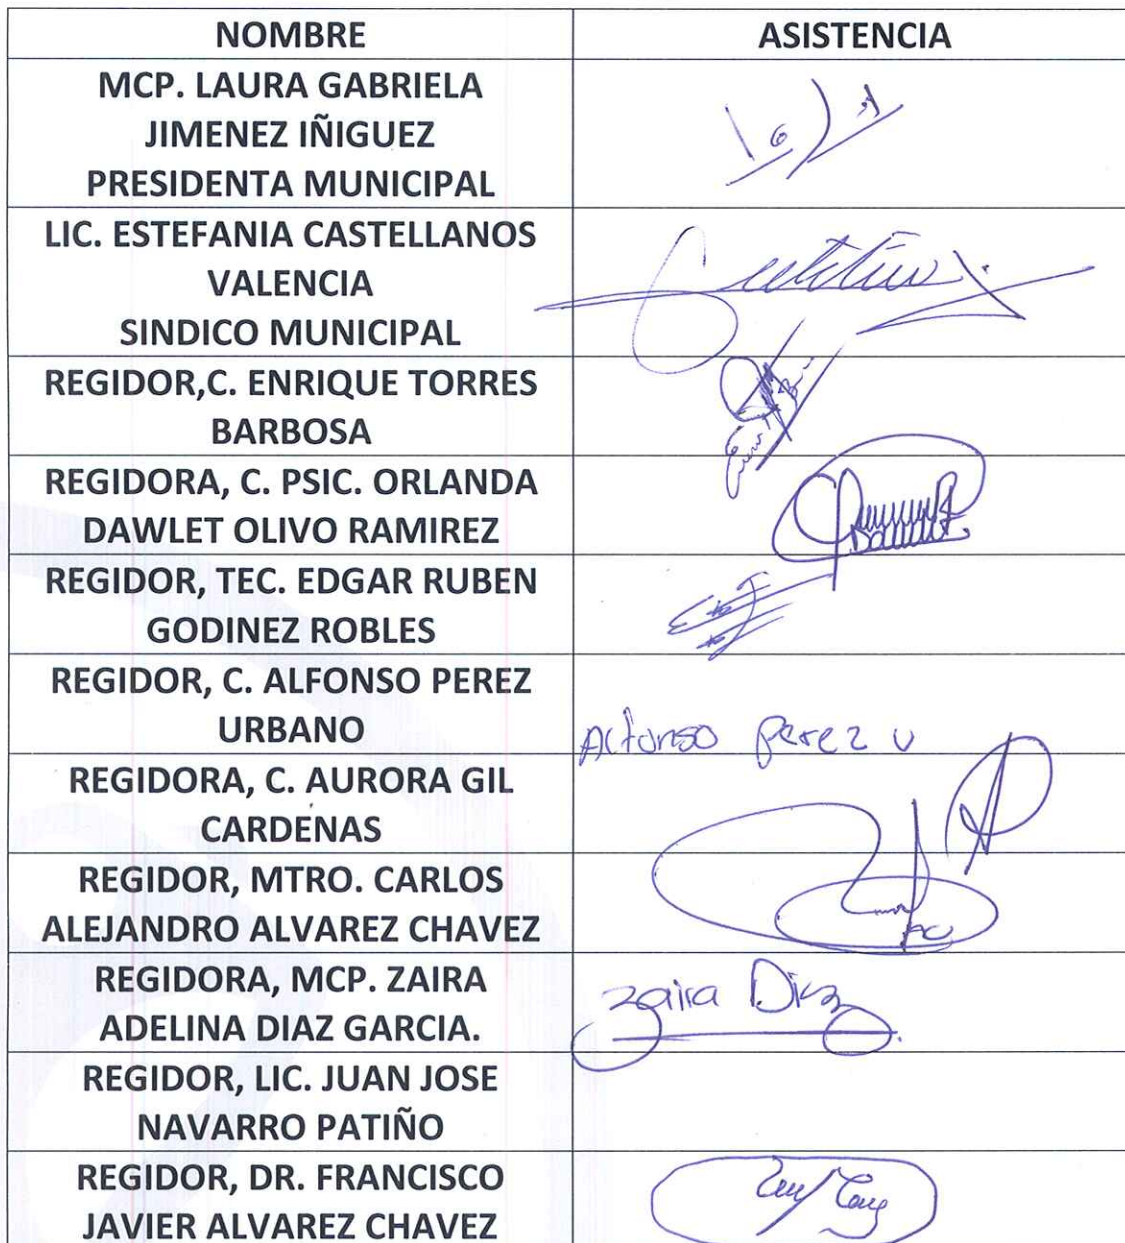 NOMBRE ASISTENCIA
MCP. LAURA GABRIELA
JIMENEZ IÑIGUEZ
PRESIDENTA MUNICIPAL
LIC. ESTEFANIA CASTELLANOS
VALENCIA
SINDICO MUNICIPAL
REGIDOR,C. ENRIQUE TORRES
BARBOSA
REGIDORA, C. PSIC. ORLANDA
DAWLET OLIVO RAMIREZ
REGIDOR, TEC. EDGAR RUBEN
GODINEZ ROBLES
REGIDOR, C. ALFONSO PEREZ
URBANO
Alfonso Perez U
REGIDORA, C. AURORA GIL
CARDENAS
REGIDOR, MTRO. CARLOS
ALEJANDRO ALVAREZ CHAVEZ
REGIDORA, MCP. ZAIRA
ADELINA DIAZ GARCIA.
Zaira Diaz
REGIDOR, LIC. JUAN JOSE
NAVARRO PATIÑO
REGIDOR, DR. FRANCISCO
JAVIER ALVAREZ CHAVEZ